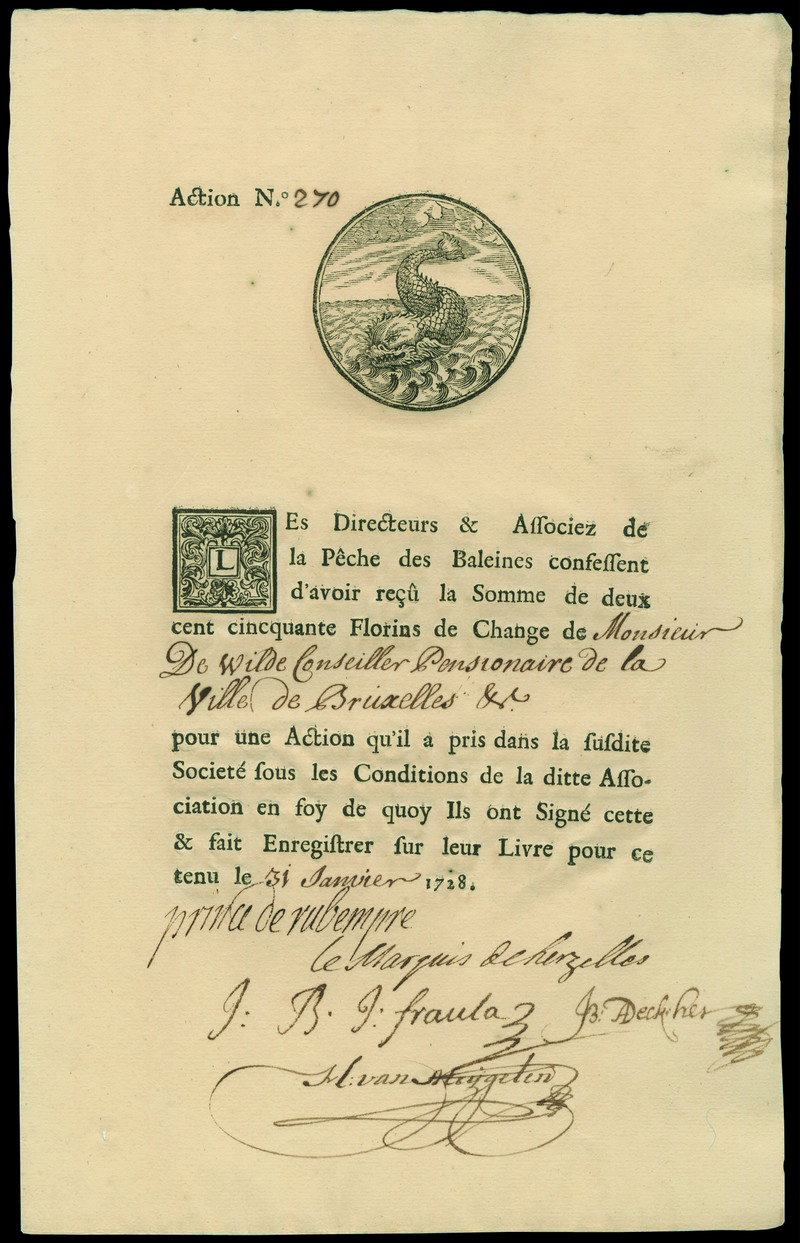 Action N.o 270
LEs Directeurs & Aſſociez de
la Pêche des Baleines confeſſent
d'avoir reçû la Somme de deux
cent cincquante Florins de Change de Monsieur
De Wilde Conseiller Pensionaire de la
Ville de Bruxelles &c.
pour une Action qu'il a pris dans la ſuſdite
Societé ſous les Conditions de la ditte Aſſo-
ciation en foy de quoy Ils ont Signé cette
& fait Enregiſtrer ſur leur Livre pour ce
tenu le 31 Janvier 1728.
prince de rubempre
le Marquis de herzelles
J: B: J: fraula
JB: Deckher
H: van